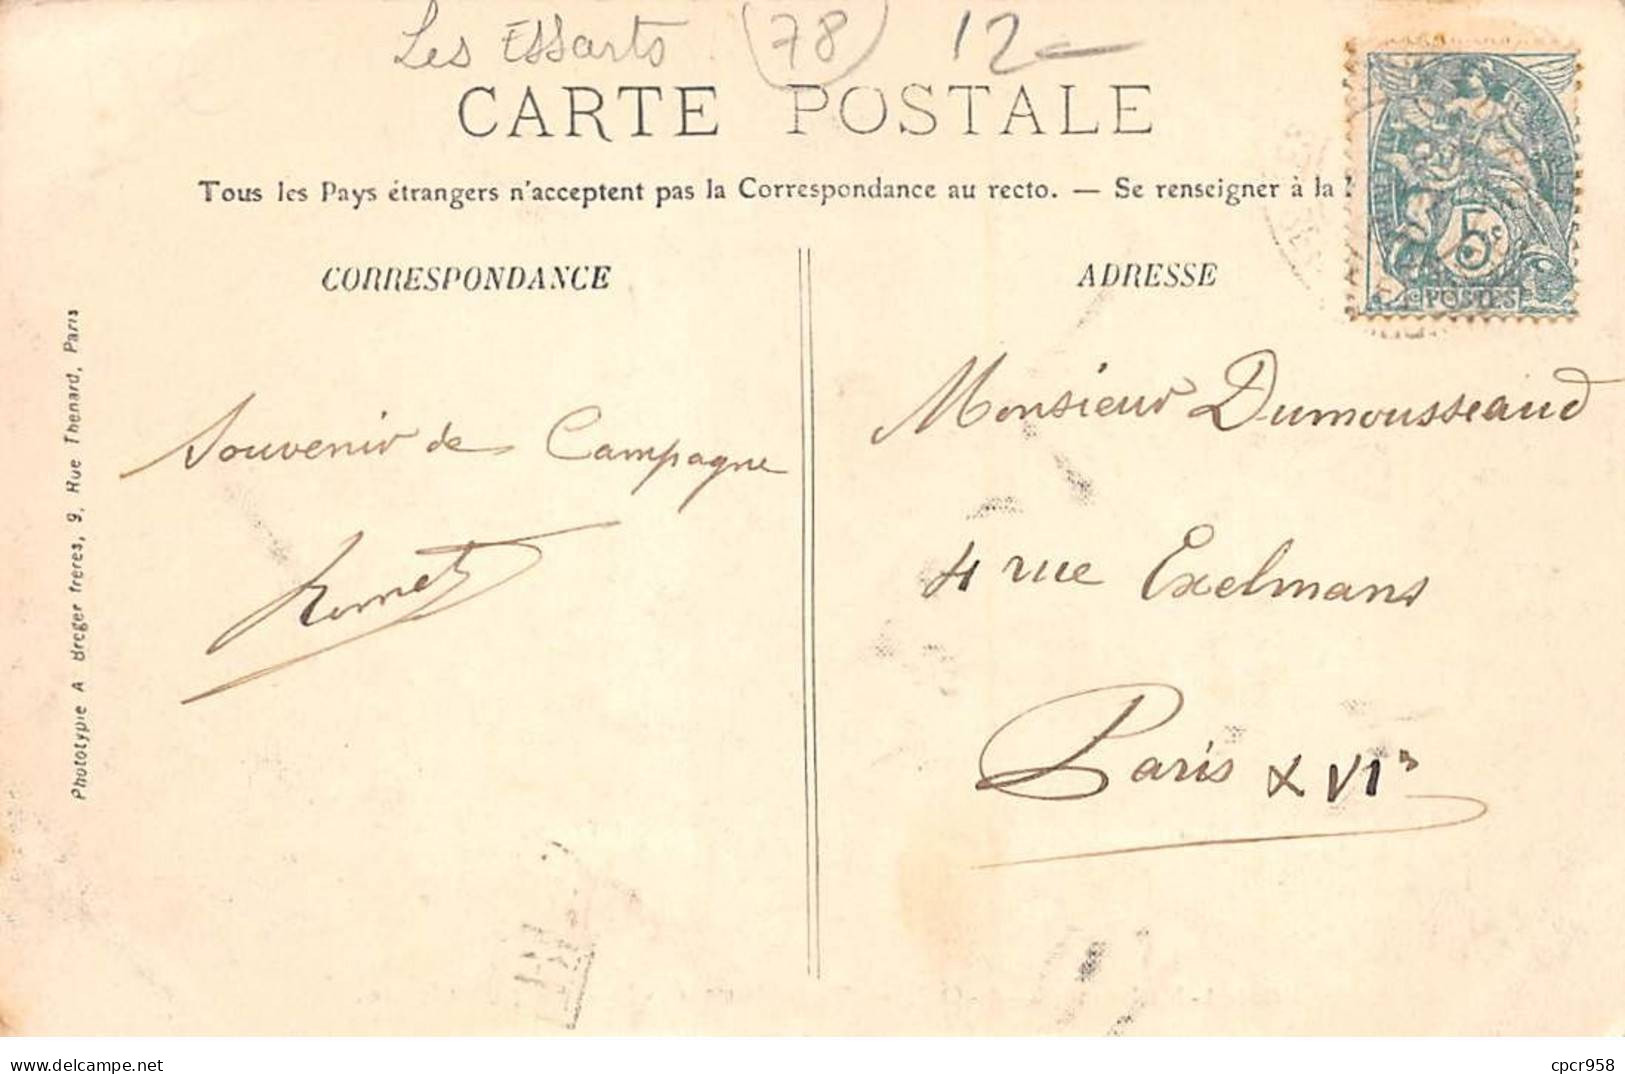 Les Essarts (78) 12
CARTE POSTALE
Tous les Pays étrangers n'acceptent pas la Correspondance au recto. — Se renseigner à la
CORRESPONDANCE
ADRESSE
5c
POSTES
Phototypie A Breger frères, 9, Rue Thenard, Paris
Souvenir de Campagne
Monsieur Dumousseaud
4 rue Exelmans
Paris XVIe
delcampe.net
cpcr958